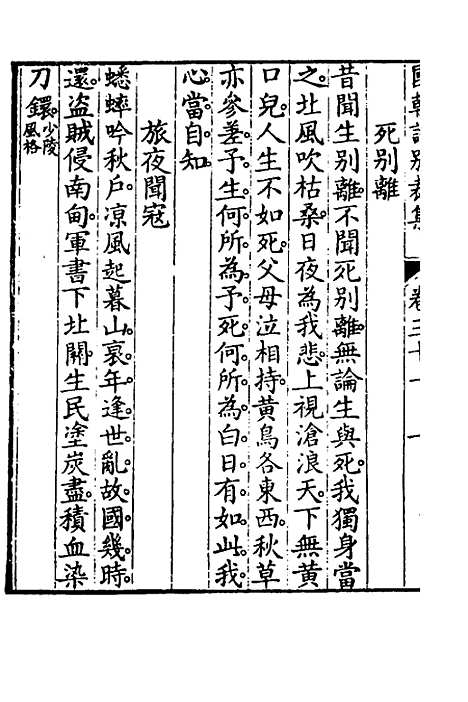 國朝詩別裁集 卷三十一 一
死別離
昔聞生別離。不聞死別離。無論生與死。我獨身當
之。北風吹枯桑。日夜為我悲。上視滄浪天。下無黃
口兒。人生不如死。父母泣相持。黃鳥各東西。秋草
亦參差。予生何所為。予死何所為。白日有如此。我
心當自知
旅夜聞寇
蟋蟀吟秋戶。凉風起暮山。衰年逢世亂。故國幾時
還。盜賊侵南甸。軍書下北關。生民塗炭盡。積血染
刀鐶。少陵風格